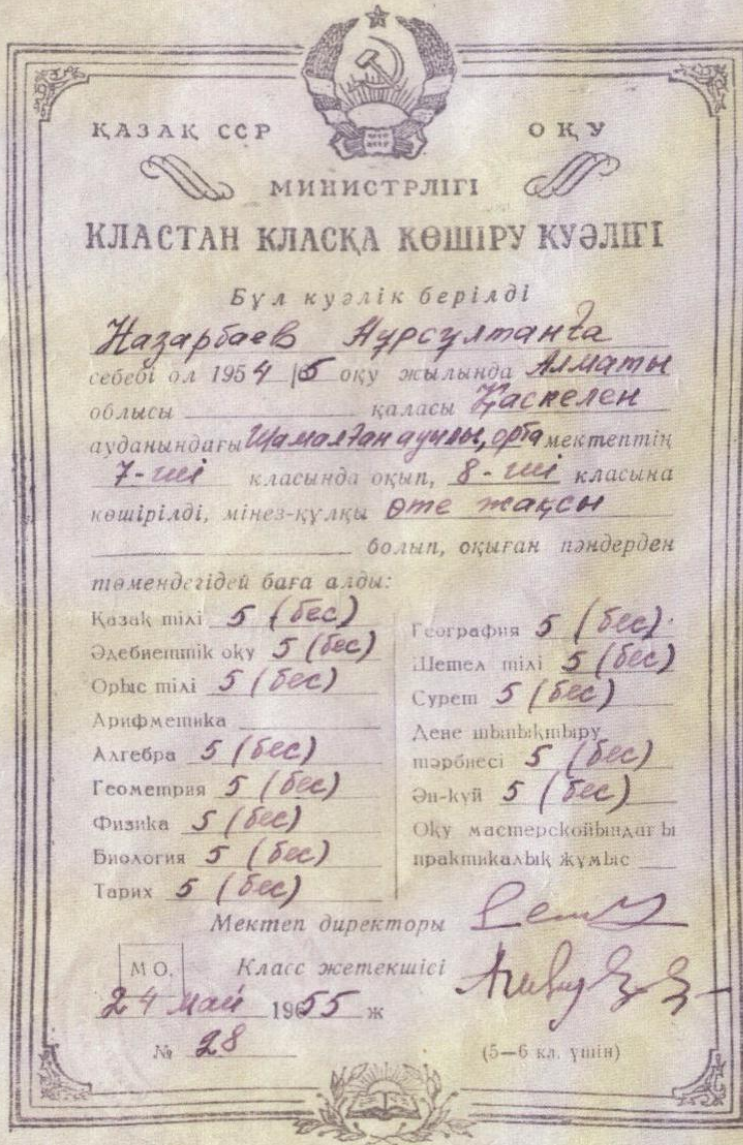 ҚАЗАҚ ССР ОҚУ
МИНИСТРЛІГІ
КЛАСТАН КЛАСҚА КӨШІРУ КУӘЛІГІ
Бұл куәлік берілді
Назарбаев Нұрсұлтанға
себебі ол 1954/5 оқу жылында Алматы
облысы қаласы Қаскелең
ауданындағы Шамалған ауылы, орта мектептің
7-ші класында оқып, 8-ші класына
көшірілді, мінез-құлқы өте жақсы
болып, оқыған пәндерден
төмендегідей баға алды:
Қазақ тілі 5 (бес)
Әдебиеттік оқу 5 (бес)
Орыс тілі 5 (бес)
Арифметика
Алгебра 5 (бес)
Геометрия 5 (бес)
Физика 5 (бес)
Биология 5 (бес)
Тарих 5 (бес)
География 5 (бес)
Шетел тілі 5 (бес)
Сурет 5 (бес)
Дене шынықтыру
тәрбиесі 5 (бес)
Ән-күй 5 (бес)
Оқу мастерскойындағы
практикалық жұмыс
Мектеп директоры
М О. Класс жетекшісі
24 май 1955 ж
№ 28
(5—6 кл. үшін)